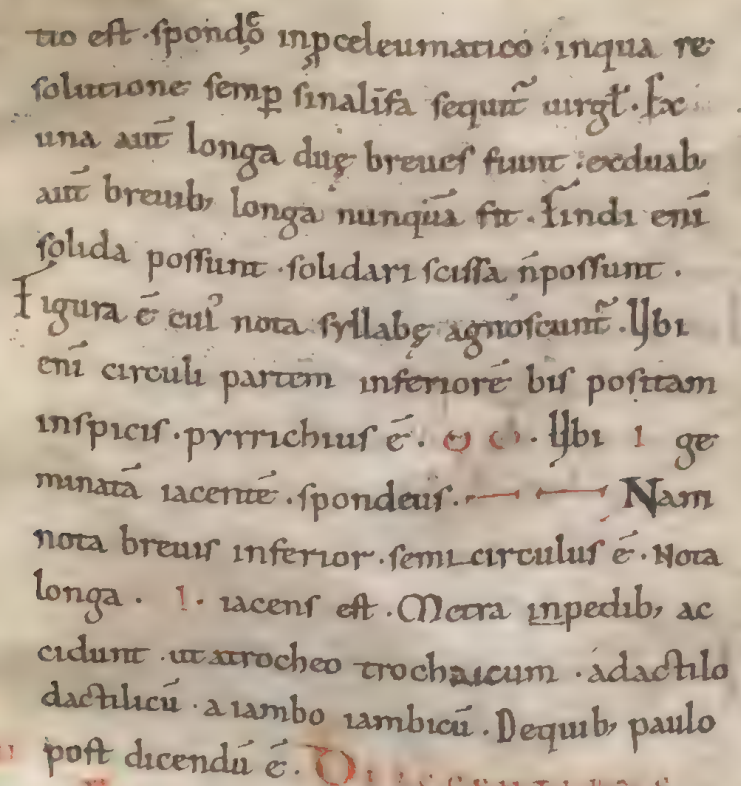 tio est · spondęo inp̱celeumatico · inqua re
solutione semꝑ sinalīfa sequit᷑ uirgł · Ex
una aut̄ longa duę breues fiunt · exduab;
aut̄ breuib; longa nunquā fit · findi enī
solida possunt · solidari scissa ñpossunt ·
Figura ē cui᷒ nota syllabę agnoscunt᷑ · Ubi
enī circuli partem inferiorē bis positam
inspicis · pyrrichius ē · ◡ ◡ · Ubi I ge
minatā iacentē · spondeus · — — Nam
nota breuis inferior · semicirculus ē · Nota
longa · I · iacens est · Metra inpedib; ac
cidunt · ut atrocheo trochaicum · adactilo
dactilicū · a iambo iambicū · Dequib; paulo
post dicendū ē ·